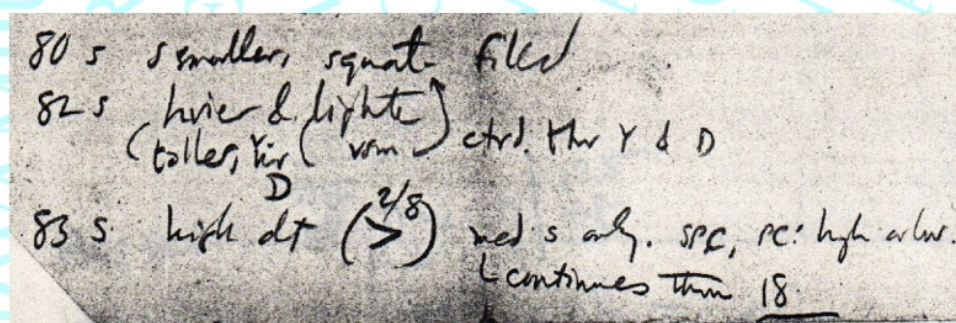 80 s smaller, squat filled
82 s hvier & lighter
(taller, Yir ( vsm ) ctrd. thr Y & D
D
83 s. high dt (> 2/8) med s only. SPC, PC: high or low.
continues thru 18